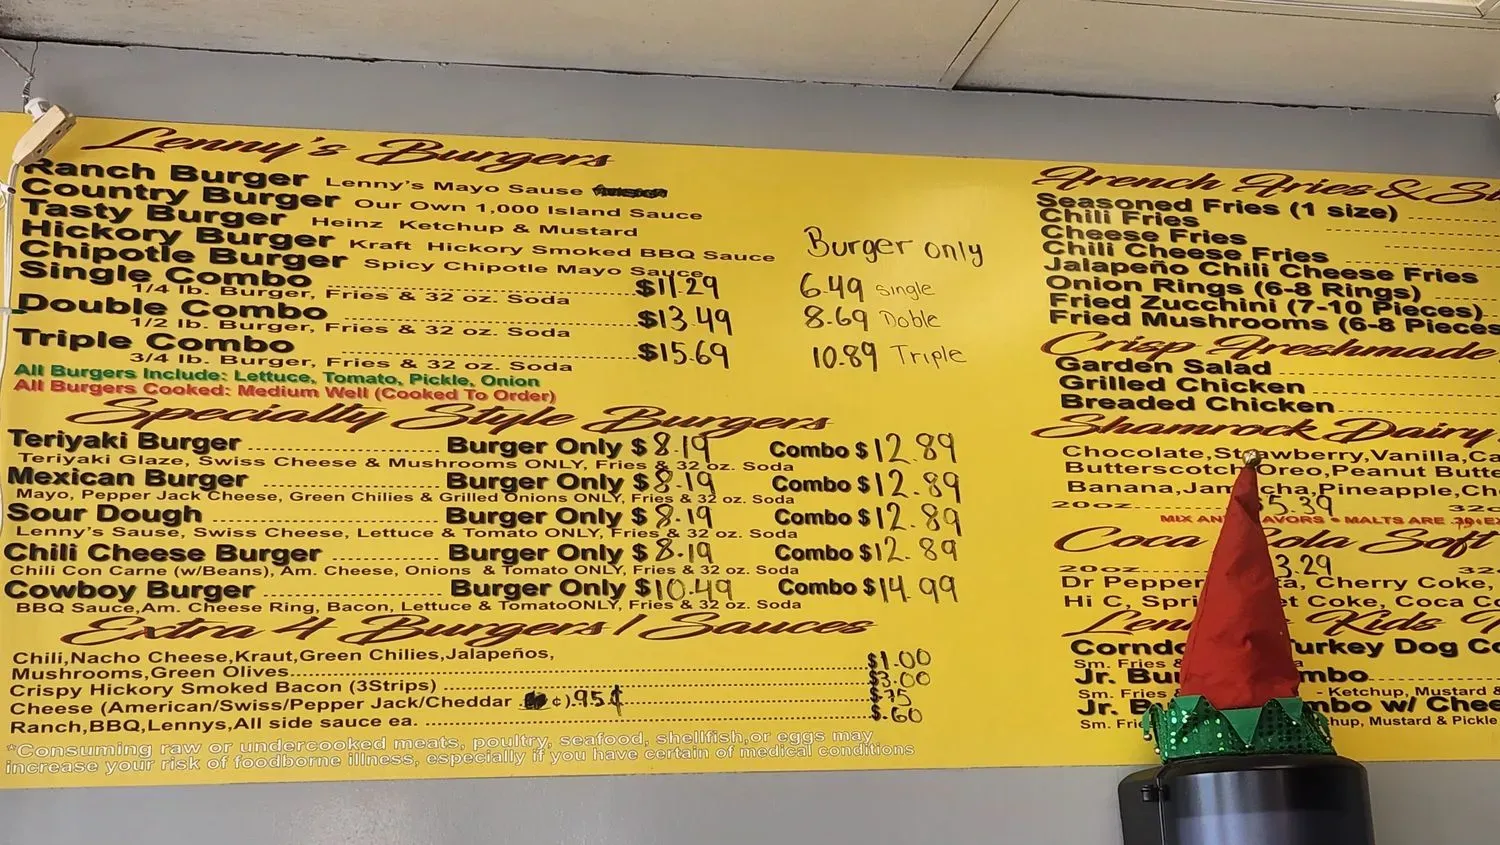 Lenny's Burgers
Ranch Burger Lenny's Mayo Sause
Country Burger Our Own 1,000 Island Sauce
Tasty Burger Heinz Ketchup & Mustard
Hickory Burger Kraft Hickory Smoked BBQ Sauce
Chipotle Burger Spicy Chipotle Mayo Sauce
Single Combo $11.29
1/4 lb. Burger, Fries & 32 oz. Soda
Double Combo $13.49
1/2 lb. Burger, Fries & 32 oz. Soda
Triple Combo $15.69
3/4 lb. Burger, Fries & 32 oz. Soda
Burger only
6.49 single
8.69 Doble
10.89 Triple
All Burgers Include: Lettuce, Tomato, Pickle, Onion
All Burgers Cooked: Medium Well (Cooked To Order)
Specialty Style Burgers
Teriyaki Burger Burger Only $8.19 Combo $12.89
Teriyaki Glaze, Swiss Cheese & Mushrooms ONLY, Fries & 32 oz. Soda
Mexican Burger Burger Only $8.19 Combo $12.89
Mayo, Pepper Jack Cheese, Green Chilies & Grilled Onions ONLY, Fries & 32 oz. Soda
Sour Dough Burger Only $8.19 Combo $12.89
Lenny's Sause, Swiss Cheese, Lettuce & Tomato ONLY, Fries & 32 oz. Soda
Chili Cheese Burger Burger Only $8.19 Combo $12.89
Chili Con Carne (w/Beans), Am. Cheese, Onions & Tomato ONLY, Fries & 32 oz. Soda
Cowboy Burger Burger Only $10.49 Combo $14.99
BBQ Sauce,Am. Cheese Ring, Bacon, Lettuce & TomatoONLY, Fries & 32 oz. Soda
Extra 4 Burgers / Sauces
Chili,Nacho Cheese,Kraut,Green Chilies,Jalapeños,
Mushrooms,Green Olives $1.00
Crispy Hickory Smoked Bacon (3Strips) $3.00
Cheese (American/Swiss/Pepper Jack/Cheddar ¢).95¢ $.75
Ranch,BBQ,Lennys,All side sauce ea. $.60
*Consuming raw or undercooked meats, poultry, seafood, shellfish,or eggs may
increase your risk of foodborne illness, especially if you have certain of medical conditions
French Fries &
Seasoned Fries (1 size)
Chili Fries
Cheese Fries
Chili Cheese Fries
Jalapeño Chili Cheese Fries
Onion Rings (6-8 Rings)
Fried Zucchini (7-10 Pieces)
Fried Mushrooms (6-8 Pieces
Crisp Freshmade
Garden Salad
Grilled Chicken
Breaded Chicken
Shamrock Dairy
Chocolate,Strawberry,Vanilla,
Butterscotch,Oreo,Peanut
Banana, Pineapple,
20oz 5.39
MIX MALTS ARE
Coca Cola Soft
20oz 3.29
Dr Pepper, Cherry Coke,
Hi C, Coke, Coca
Kids
Turkey Dog
Sm. Fries
Jr.
Sm. Fries - Ketchup, Mustard &
Jr. w/
Sm. Mustard & Pickle